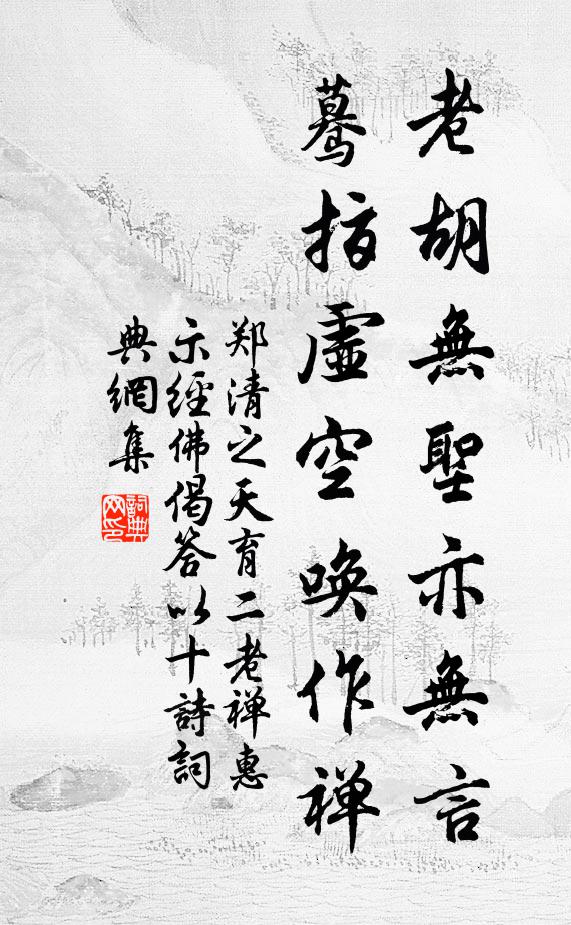 老胡無聖亦無言
驀指虛空唤作禅
郑清之天育二老禅惠
示經佛偈答以十詩詞
典網集
詞典
网印